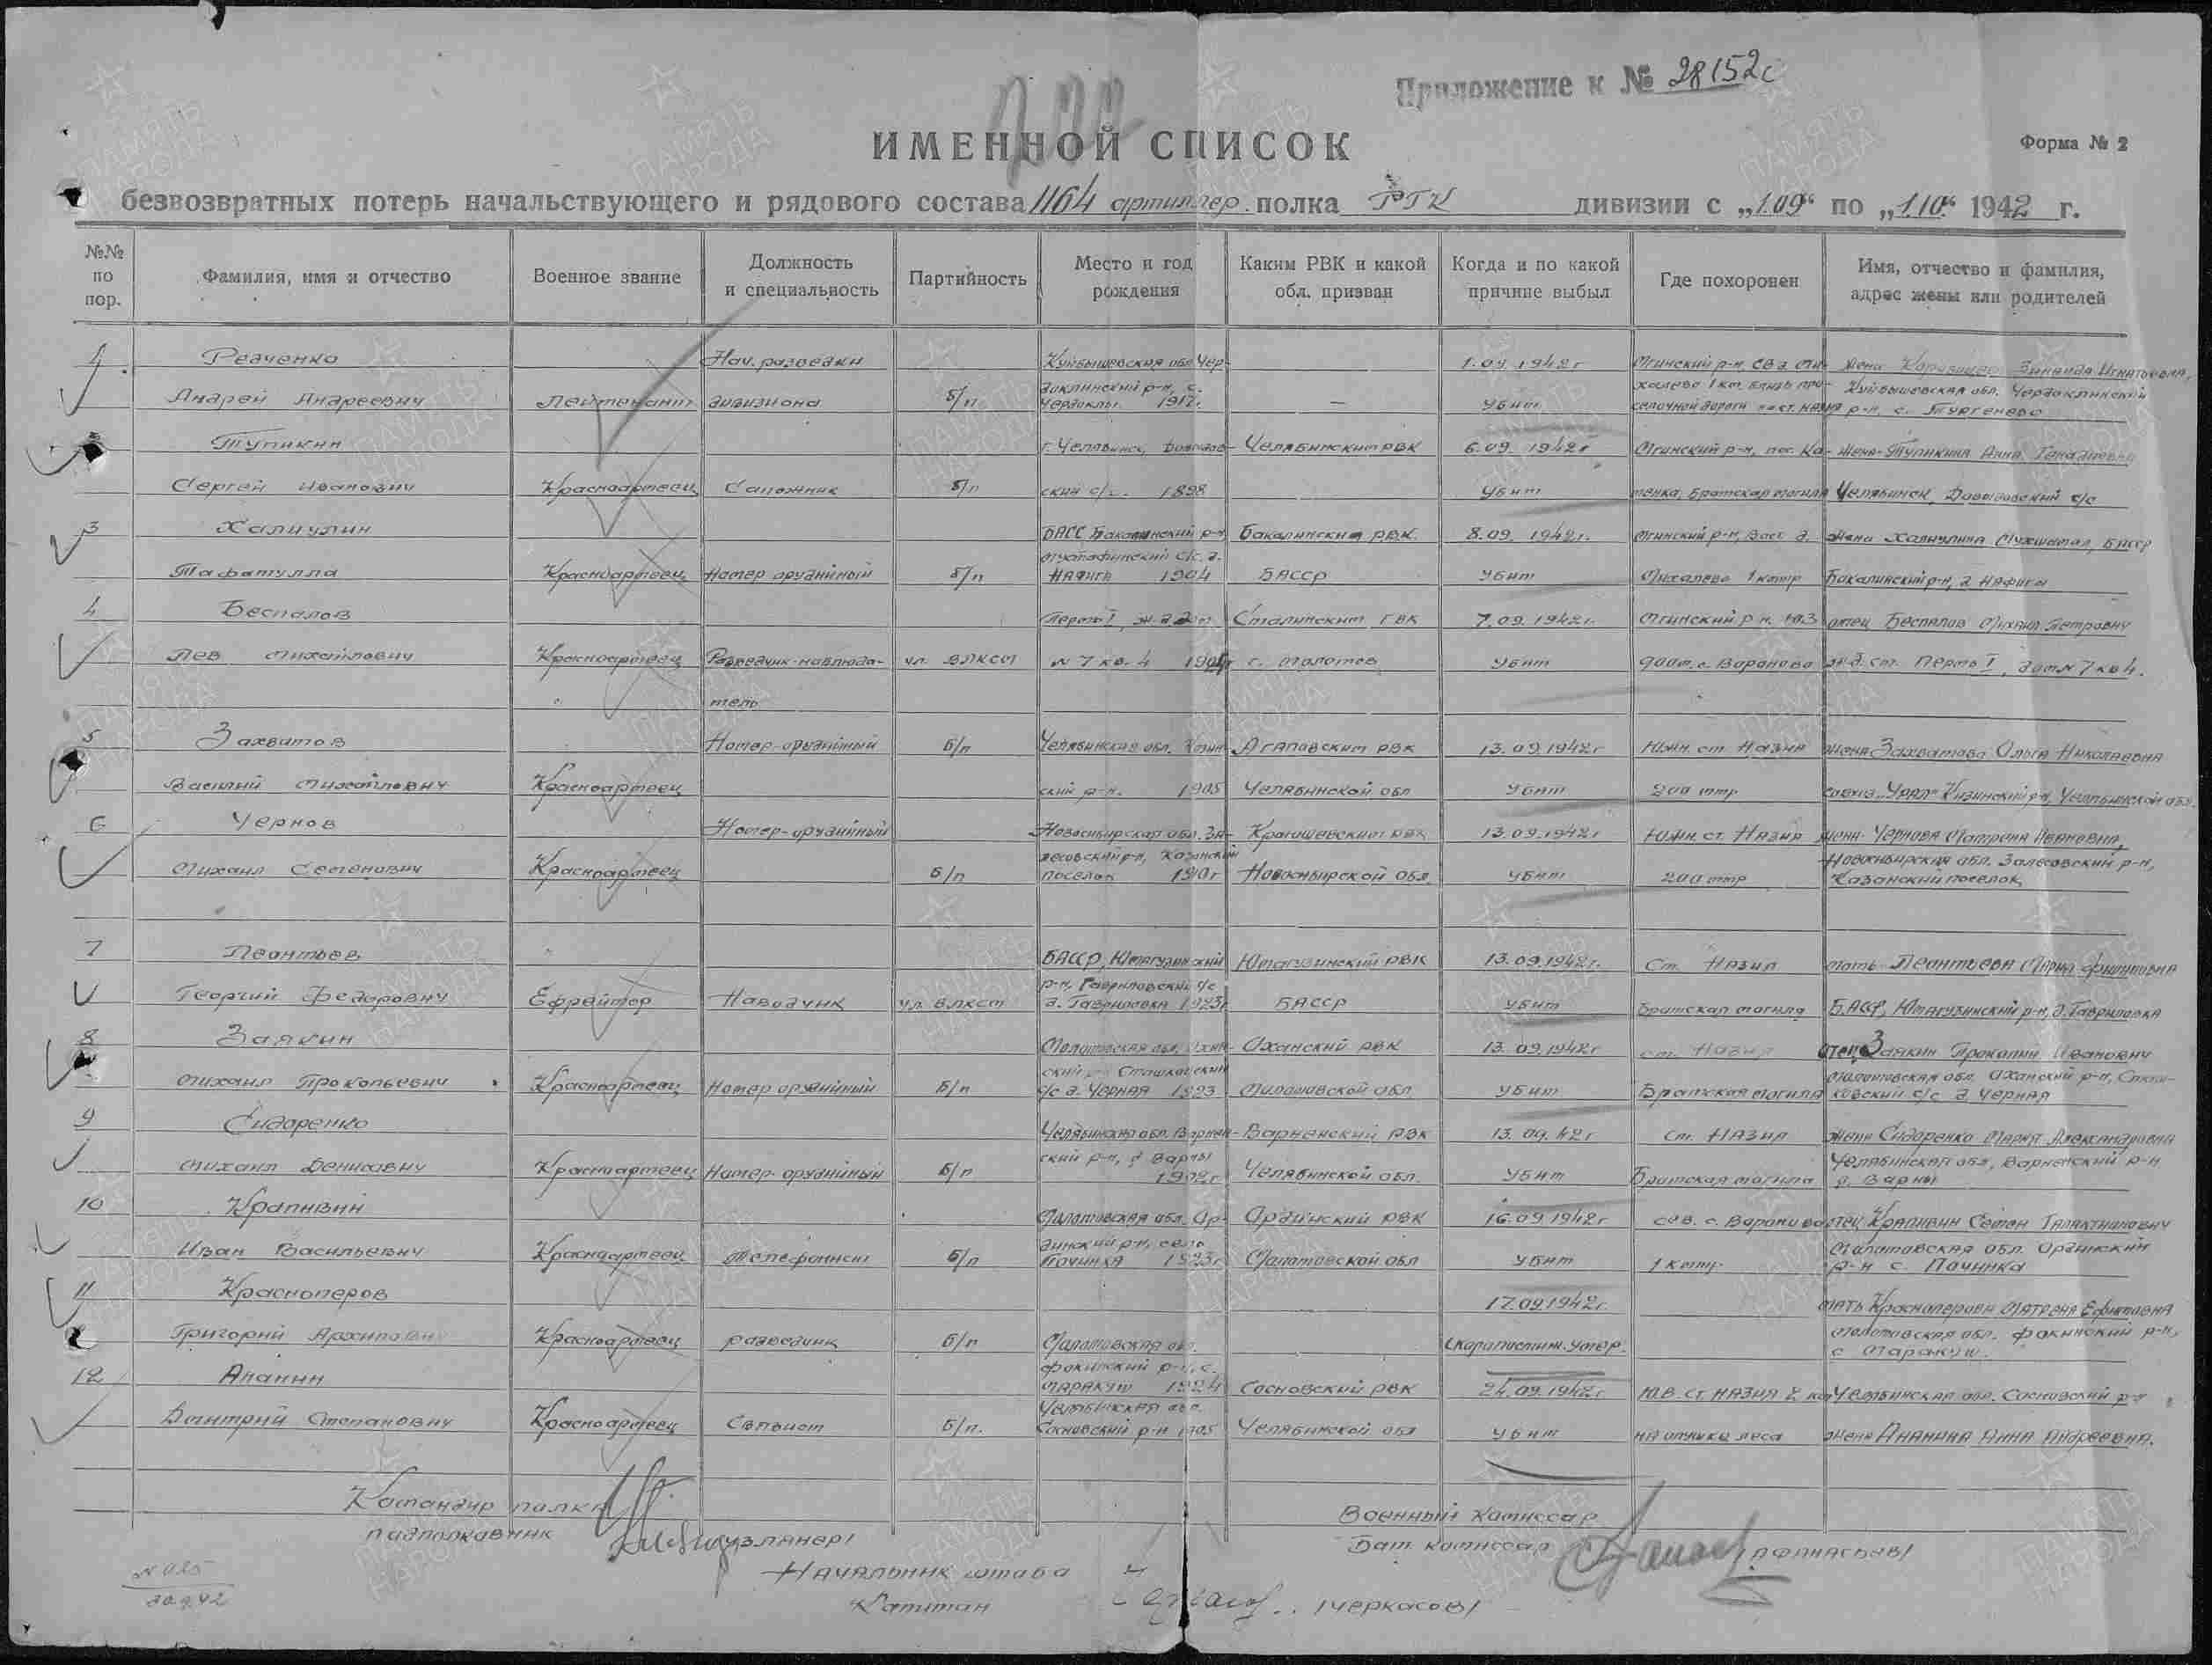 Приложение к № 28152с
ИМЕННОЙ СПИСОК
Форма № 2
безвозвратных потерь начальствующего и рядового состава 1164 артиллер. полка РГК дивизии с „1.09“ по „1.10“ 1942 г.
№№ по пор.
Фамилия, имя и отчество
Военное звание
Должность и специальность
Партийность
Место и год рождения
Каким РВК и какой обл. призван
Когда и по какой причине выбыл
Где похоронен
Имя, отчество и фамилия, адрес жены или родителей
1 Редченко Нач. разведки Куйбышевская обл. Чер- 1.09.1942г Мгинский р-н, жена Зинаида Игнатьевна,
Андрей Андреевич Лейтенант дивизиона б/п даклинский р-н, с. Чердаклы 1917г. — убит 1 км Куйбышевская обл. Чердаклинский р-н, с. Тургенево
Тупикин г. Челябинск, Челябинским РВК 6.09.1942г Мгинский р-н, пос. Ка- жена-Тупикина Анна
Сергей Иванович Красноармеец Сапожник б/п ский с/с. 1898 убит менка, Братская могила Челябинск, с/с
3 Халиулин БАСС Бакалинский р-н, Бакалинским РВК 8.09.1942г. Мгинский р-н, Вост. д. жена Халиулина БАССР
Тафатулла Красноармеец Номер орудийный б/п 1904 БАССР убит Михалево 1 кмтр Бакалинский р-н, д Нафиги
4 Беспалов Пермь I, Сталинским ГВК 7.09.1942г. Мгинский р-н. ЮЗ отец Беспалов Михаил Петрович
Лев Михайлович Красноармеец Разведчик-наблюда- чл. ВЛКСМ N 7 кв. 4 г. Молотов убит 900 м. с. Вороново ж.д. ст. Пермь I, дом N 7 кв 4.
тель
5 Захватов Номер-орудийный б/п Челябинская обл. Кизил- Агаповским РВК 13.09.1942г Южн. ст. Назия жена Захватова Ольга Николаевна
Василий Михайлович Красноармеец ский р-н. 1905 Челябинской обл убит 200 мтр совхоз „Урал“ Кизилский р-н, Челябинской обл.
6 Чернов Номер-орудийный Новосибирская обл. За- РВК 13.09.1942г Южн. ст. Назия жена-Чернова Матрена Ивановна,
Михаил Семенович Красноармеец б/п лесовский р-н, Казанский поселок Новосибирской обл. убит 200 мтр Новосибирская обл. Залесовский р-н, Казанский поселок
7 Леонтьев БАССР, Юмагузинский Юмагузинский РВК 13.09.1942г. Ст. Назия мать Леонтьева Мария Филипповна
Георгий Федорович Ефрейтор Наводчик чл. ВЛКСМ р-н, Гавриловский с/с д. Гавриловка 1923г БАССР убит Братская могила БАССР, Юмагузинский р-н, д. Гавриловка
8 Заякин Молотовская обл. Охан- Оханский РВК 13.09.1942г ст. Назия отец Заякин Прокопий Иванович
Михаил Прокопьевич Красноармеец Номер орудийный б/п ский с/с д. Черная 1923 Молотовской обл убит Братская могила Молотовская обл. Оханский р-н, с/с д Черная
9 Сидоренко Челябинская обл. Варнен- Варненский РВК 13.09.42г ст. Назия жена Сидоренко Мария Александровна
Михаил Денисович Красноармеец Номер-орудийный б/п ский р-н, д Варны 1902г Челябинской обл. убит Братская могила Челябинская обл, Варненский р-н д. Варны
10 Крапивин Молотовская обл. Ор- Ординский РВК 16.09.1942г сев. с. Вороново отец Крапивин Семен
Иван Васильевич Красноармеец Телефонист б/п динский р-н, село Починка 1923г Молотовской обл убит 1 кмтр. Молотовская обл. Ординский р-н с. Починка
11 Красноперов 17.09.1942г. мать Красноперова Матрена Ефимовна
Григорий Архипович Красноармеец разведчик б/п Молотовская обл. Скоропостиж. умер. Молотовская обл. Фокинский р-н, с Маракуш.
12 Ананин Фокинский р-н, с. Маракуш 1924 Сосновский РВК 24.09.1942г Ю.В. ст. Назия 8 км Челябинская обл. Сосновский р-н
Дмитрий Степанович Красноармеец Связист б/п. Челябинская обл. Сосновский р-н 1905 Челябинской обл убит на опушке леса жена Ананина Анна Андреевна.
Командир полка
подполковник /Узлянер/
Военный комиссар
Бат. комиссар /Афанасьев/
Начальник штаба
Капитан /Черкасов/
N 025
30.9.42
ПАМЯТЬ НАРОДА